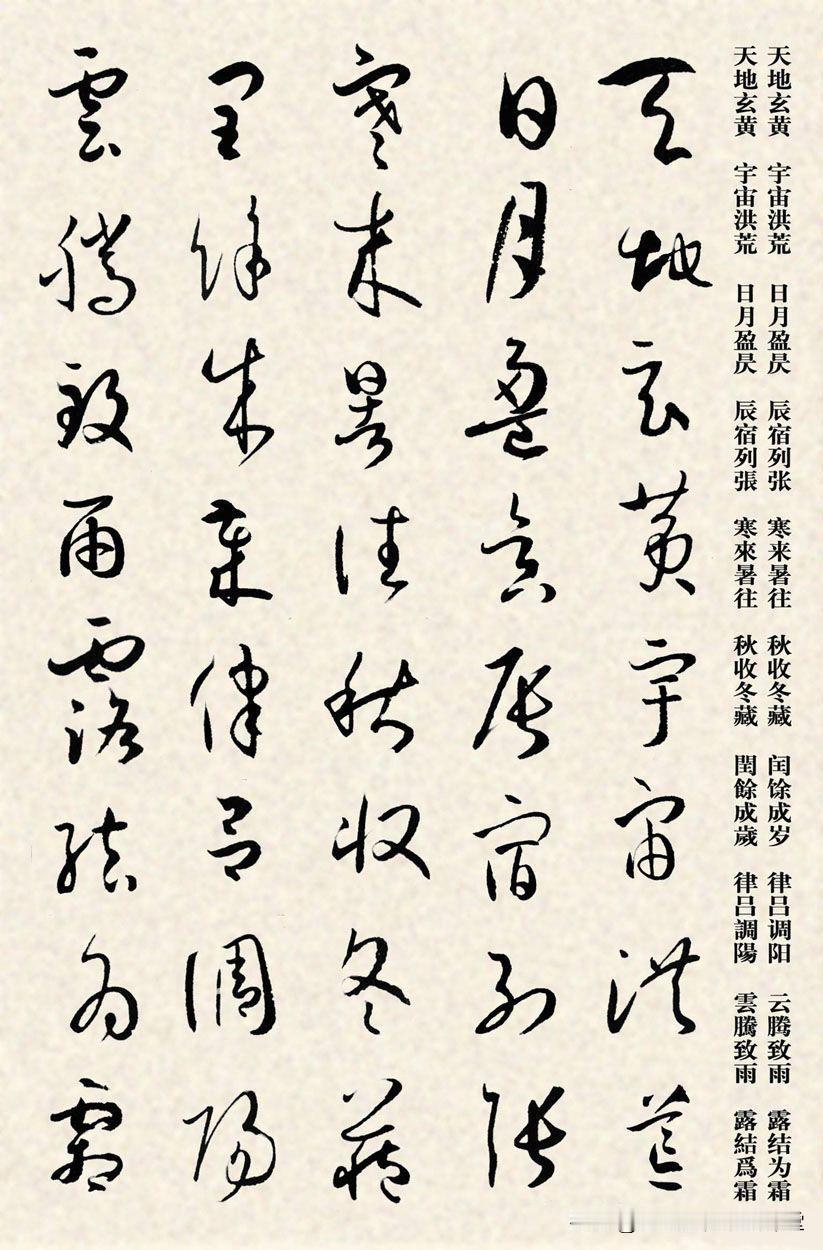 天地玄黄 宇宙洪荒 日月盈昃 辰宿列张 寒来暑往 秋收冬藏 闰馀成岁 律吕调阳 云腾致雨 露结为霜
天地玄黄 宇宙洪荒 日月盈昃 辰宿列張 寒來暑往 秋收冬藏 閏餘成歲 律吕調陽 雲騰致雨 露結爲霜
天地玄黄宇宙洪荒
日月盈昃辰宿列張
寒來暑往秋收冬藏
閏餘成歲律吕調陽
雲騰致雨露結為霜